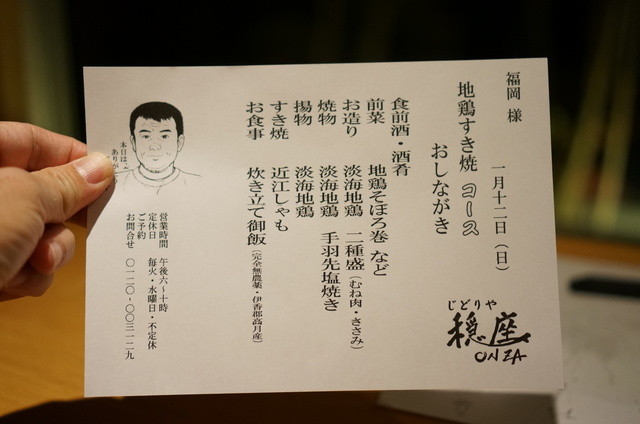 福岡 様
一月十二日（日）
地鶏すき焼 コース
おしながき
食前酒・酒肴
前菜 地鶏そぼろ巻 など
お造り 淡海地鶏 二種盛（むね肉・ささみ）
焼物 淡海地鶏 手羽先塩焼き
揚物 淡海地鶏
すき焼 近江しゃも
お食事 炊き立て御飯（完全無農薬・伊香郡高月産）
じどりや
穏座
ONZA
本日は、
営業時間 午後六～十時
定休日 毎火・水曜日・不定休
ご予約
お問合せ 〇一二〇-〇〇三-一二九